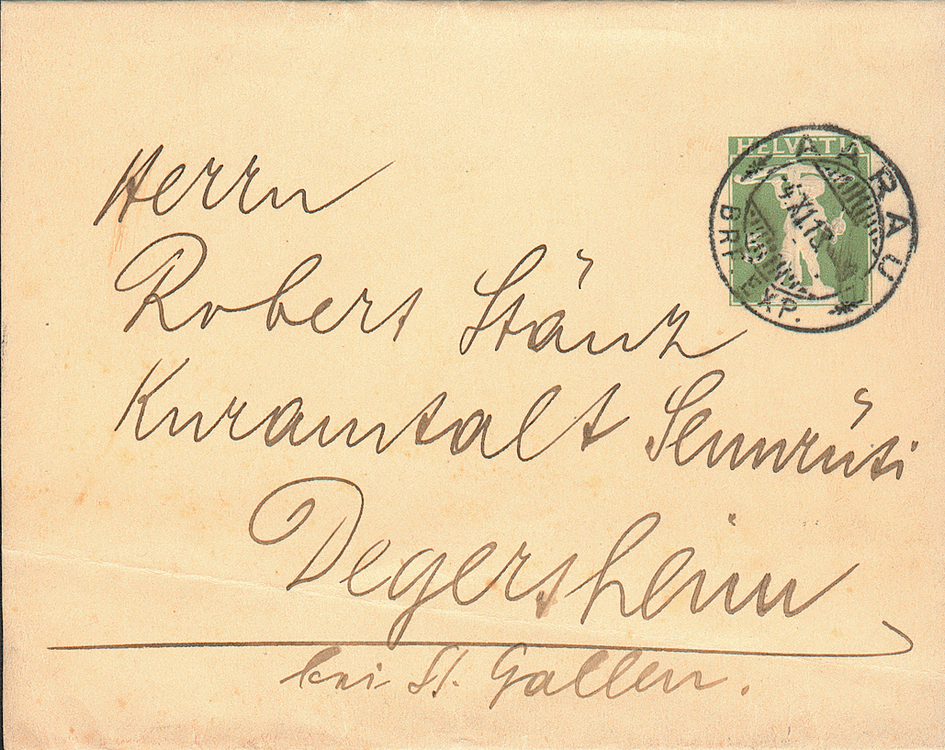 HELVETIA
AARAU
4.XI.13
BRF. EXP.
Herrn
Robert Stänz
Kuranstalt Sennrüti
Degersheim
bei St. Gallen.